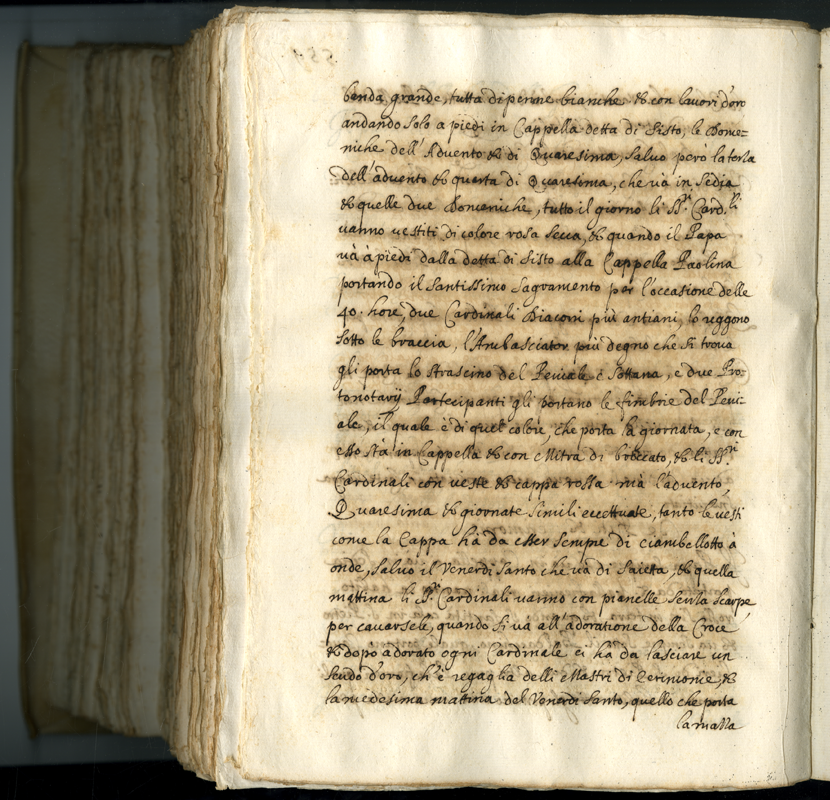 benda grande, tutta di penne bianche & con lavori d'oro
andando solo a piedi in Cappella detta di Sisto, le Dome-
niche dell'Advento & di Quaresima, salvo però la terza
dell'advento & quarta di Quaresima, che và in Sedia
& quelle due Domeniche, tutto il giorno li SS.ri Card.li
vanno vestiti di colore rosa secca, & quando il Papa
và à piedi dalla detta di Sisto alla Cappella Paolina
portando il Santissimo Sagramento per l'occasione delle
40. hore, due Cardinali Diaconi più antiani, lo reggono
sotto le braccia, l'Ambasciator più degno che si trova
gli porta lo strascino del Peviale è Sottana, e due Pro-
tonotarij Partecipanti gli portano le fimbrie del Pevi-
ale, il quale è di quel colore, che porta la giornata, e con
esso stà in Cappella & con Mitra di broccato, & li SS.ri
Cardinali con veste & cappa rossa mà l'advento,
Quaresima & giornate simili eccettuate, tanto le vesti
come la Cappa hà da esser sempre di ciambellotto à
onde, salvo il Venerdi Santo che và di Saietta, & quella
mattina li SS.ri Cardinali vanno con pianelle senza scarpe,
per cavarsele, quando si và all'adoratione della Croce
& dopò adorato ogni Cardinale ci hà da lasciare un
scudo d'oro, ch'è regaglia delli Mastri di Cerimonie, &
la medesima mattina del Venerdi Santo, quello che porta
la mazza